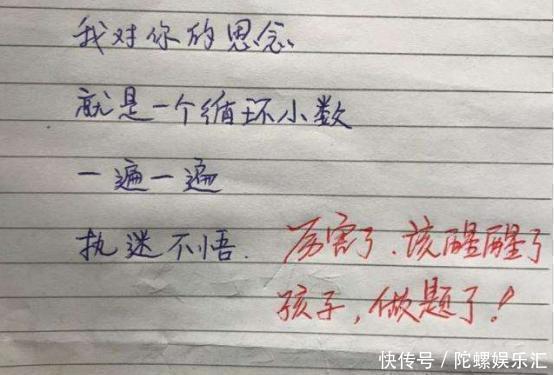 我对你的思念
就是一个循环小数
一遍一遍
执迷不悟. 厉害了.该醒醒了
孩子,做题了!
快传号/陀螺娱乐汇